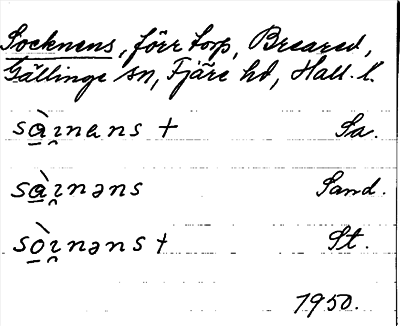 Socknens, förr torp, Breared,
Gällinge sn, Fjäre hd, Hall. l.
sà̱ı̯nens + Sa.
sà̱ı̯nəns Sand.
sò̱ı̯nəns + St.
1950.